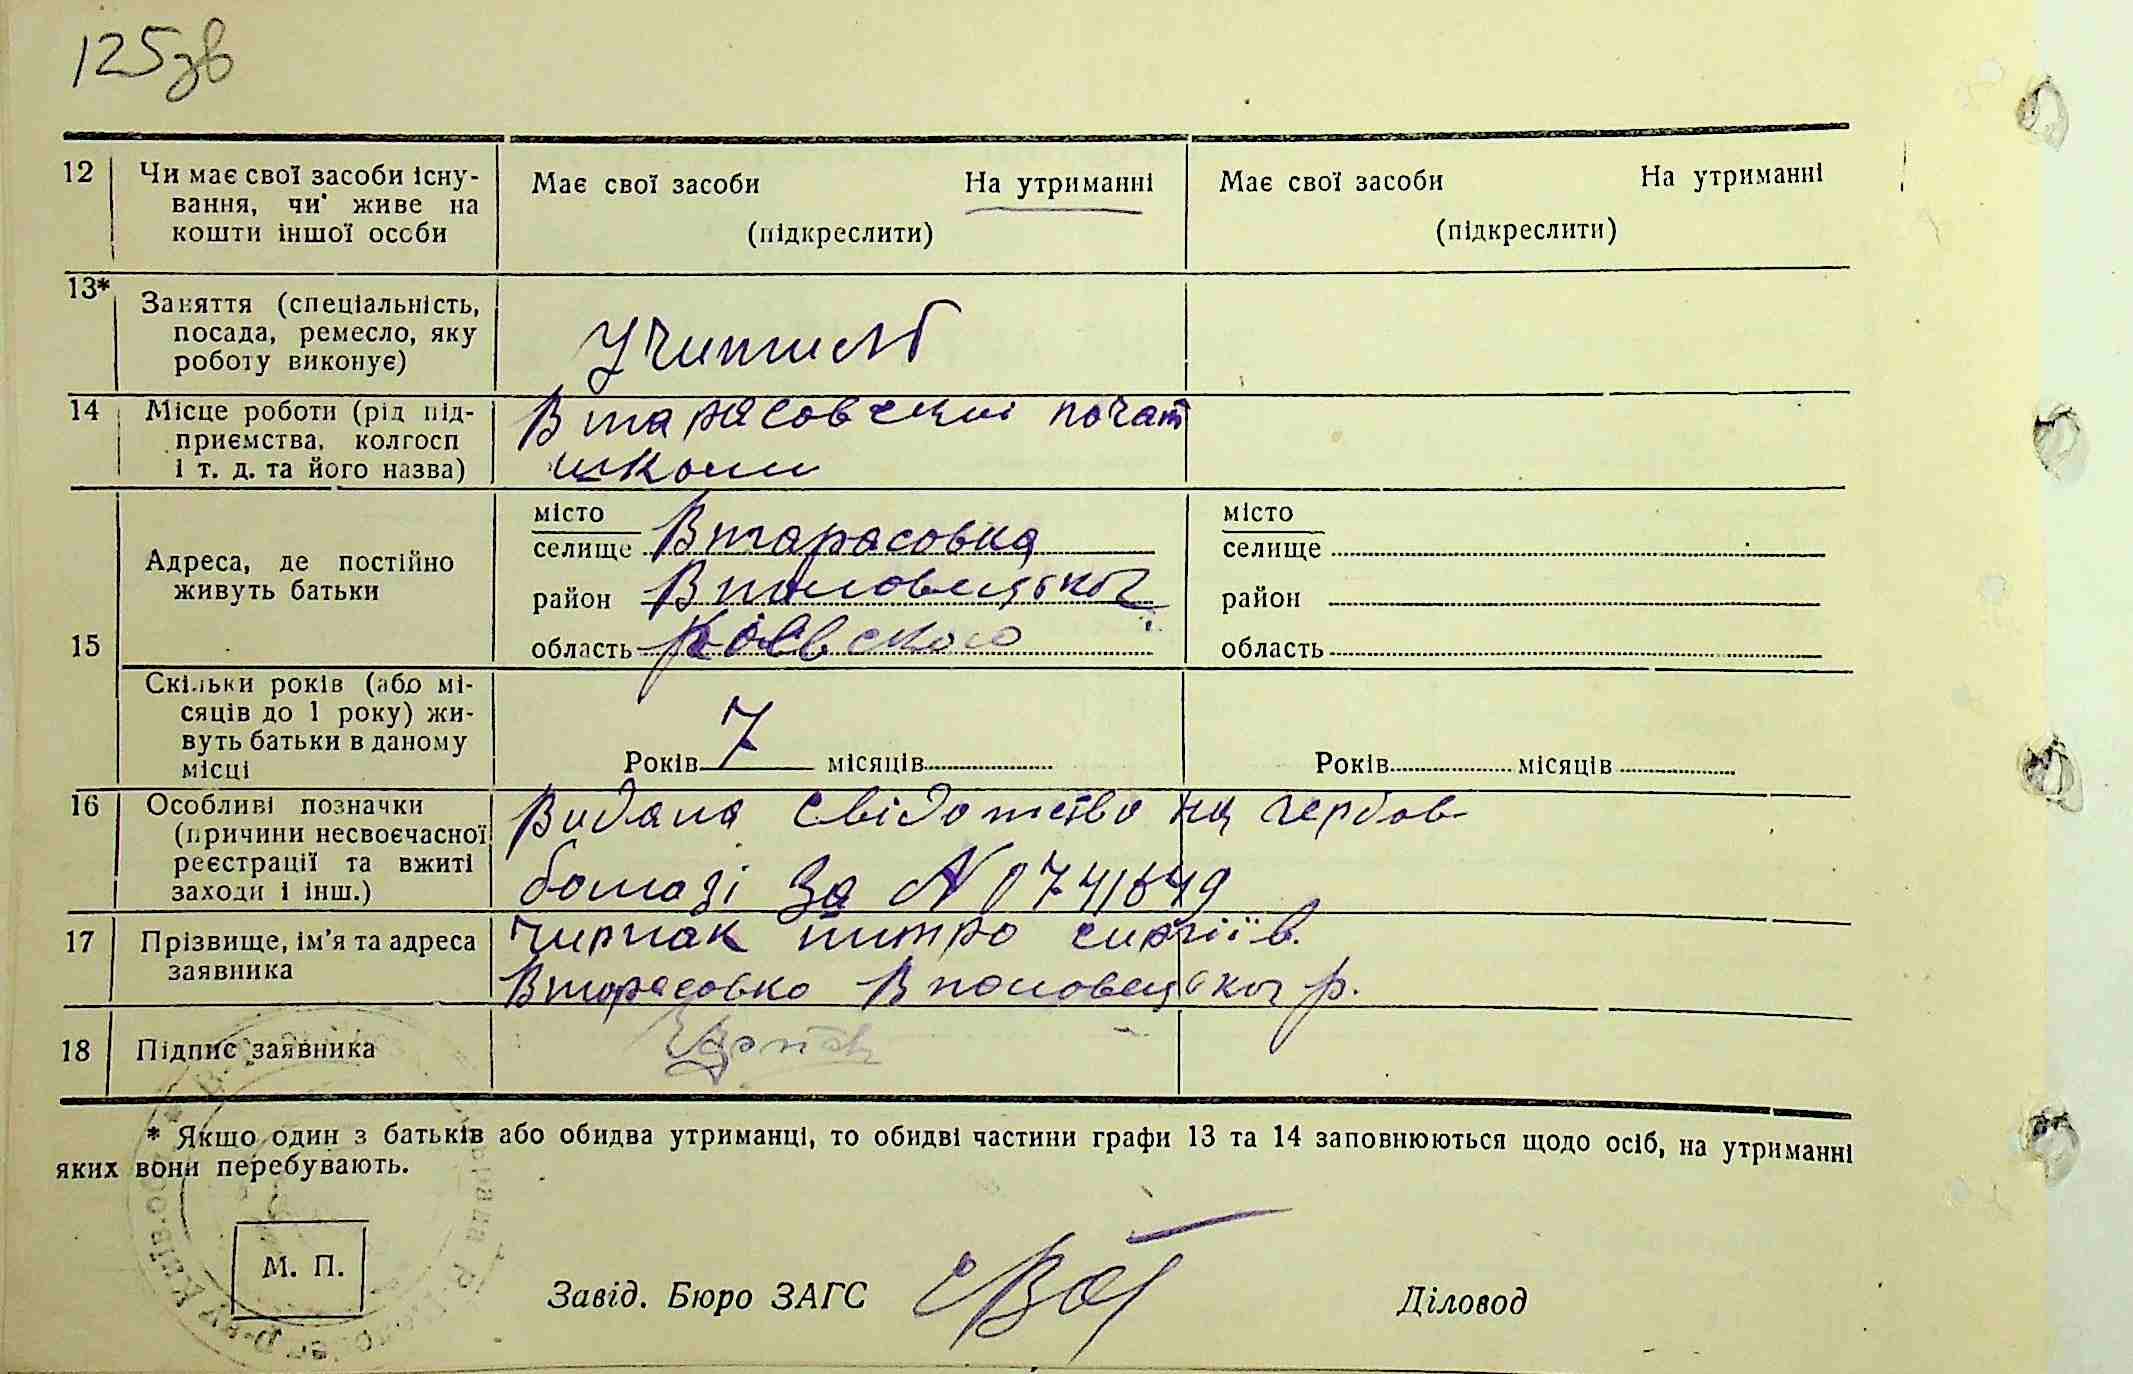 125зв
12 Чи має свої засоби існу-
вання, чи живе на
кошти іншої особи
Має свої засоби На утриманні
(підкреслити)
Має свої засоби На утриманні
(підкреслити)
13* Заняття (спеціальність,
посада, ремесло, яку
роботу виконує)
Учитиль
14 Місце роботи (рід під-
приємства, колгосп
і т. д. та його назва)
Втарасовскиі почат
школи
15 Адреса, де постійно
живуть батьки
місто
селище Втарасовка
район Вполовецького
область Київского
місто
селище
район
область
Скільки років (або мі-
сяців до 1 року) жи-
вуть батьки в даному
місці
Років 7 місяців
Років місяців
16 Особливі позначки
(причини несвоєчасної
реєстрації та вжиті
заходи і інш.)
Видана свідотство на гербов
бомазі За №
17 Прізвище, ім'я та адреса
заявника
питро сиргіїв.
Втарасовко Вполовецьког р.
18 Підпис заявника
* Якщо один з батьків або обидва утриманці, то обидві частини графи 13 та 14 заповнюються щодо осіб, на утриманні
яких вони перебувають.
М. П.
Завід. Бюро ЗАГС
Діловод